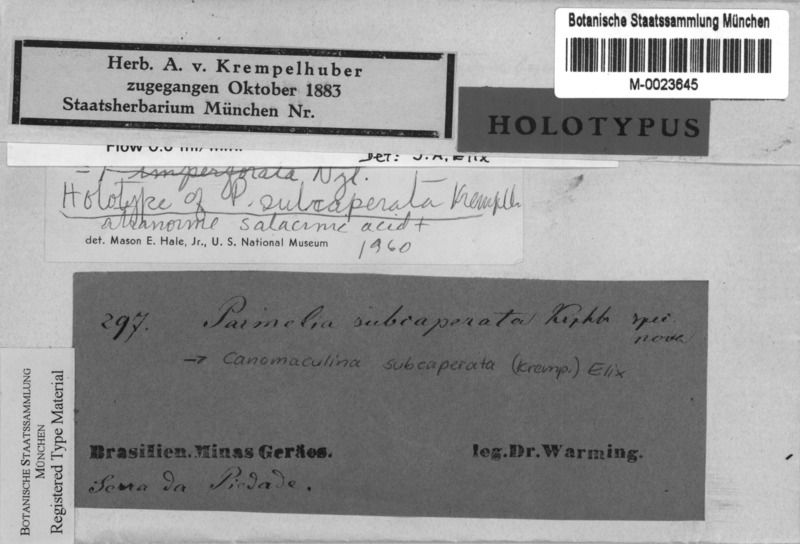 Botanische Staatssammlung München
M-0023645
Herb. A. v. Krempelhuber
zugegangen Oktober 1883
Staatsherbarium München Nr.
HOLOTYPUS
Det: J.A. Elix
= P. imperforata Nyl.
Holotype of P. subcaperata Kremplh
atranorine salacinic acid +
det. Mason E. Hale, Jr., U. S. National Museum
1960
297. Parmelia subcaperata Krphb spec.
nova
→ Canomaculina subcaperata (Kremp.) Elix
Brasilien. Minas Geräes. leg. Dr. Warming.
Serra da Piedade.
BOTANISCHE STAATSSAMMLUNG
MÜNCHEN
Registered Type Material